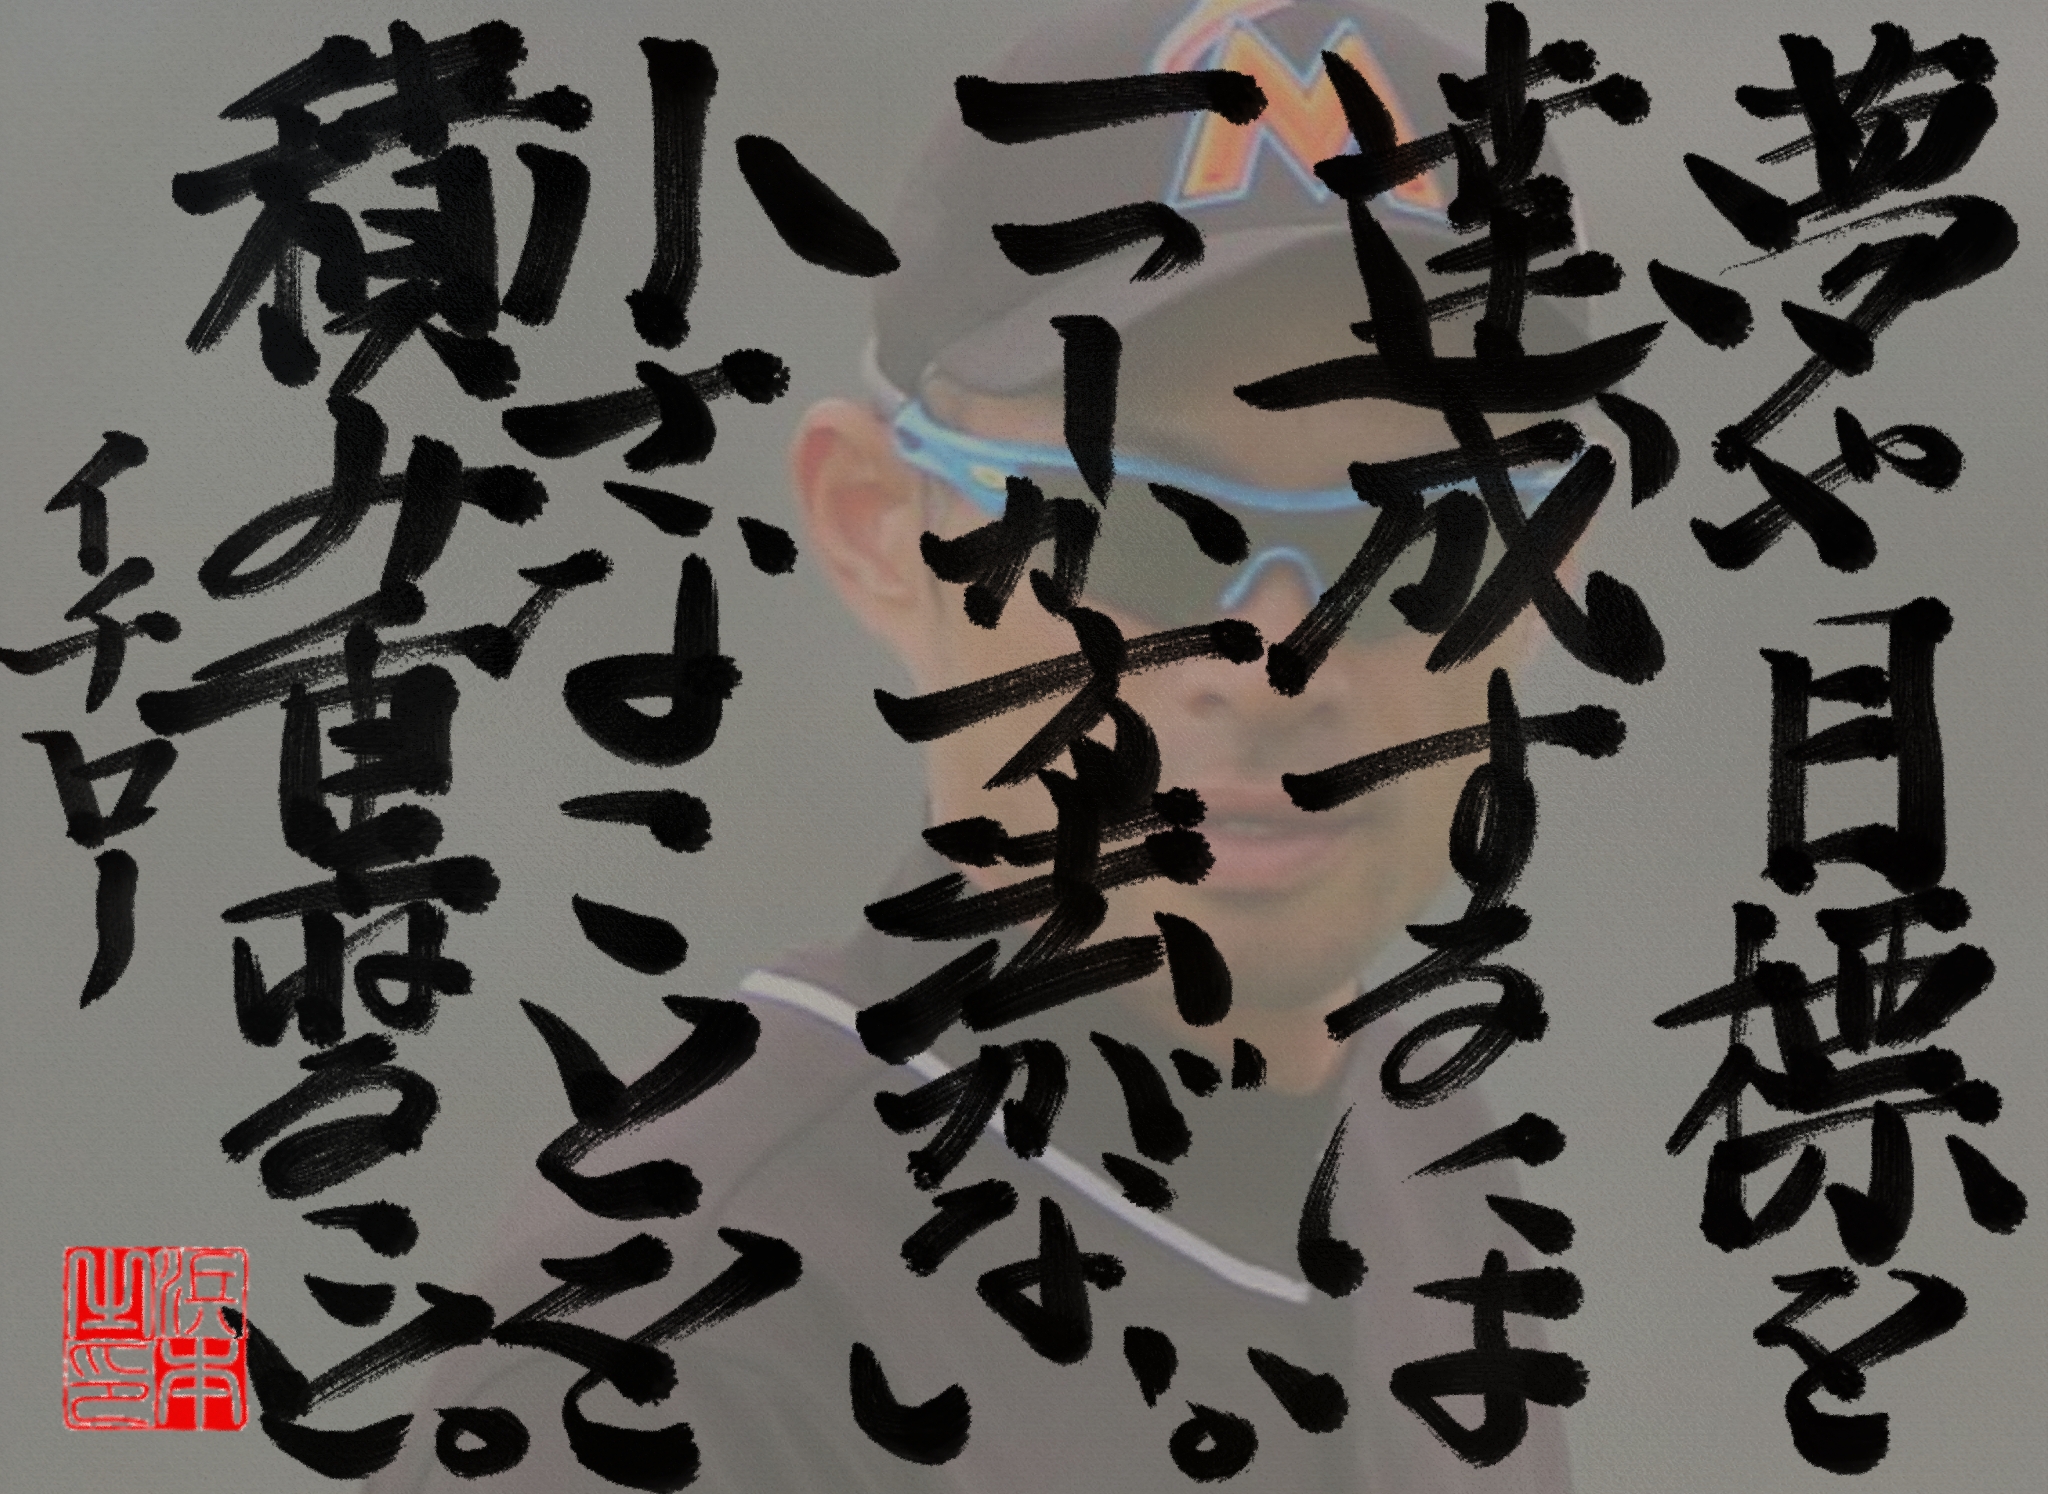 夢や目標を
達成するには
一つしか方法がない。
小さなことを
積み重ねること。
イチロー
浜本之印
M